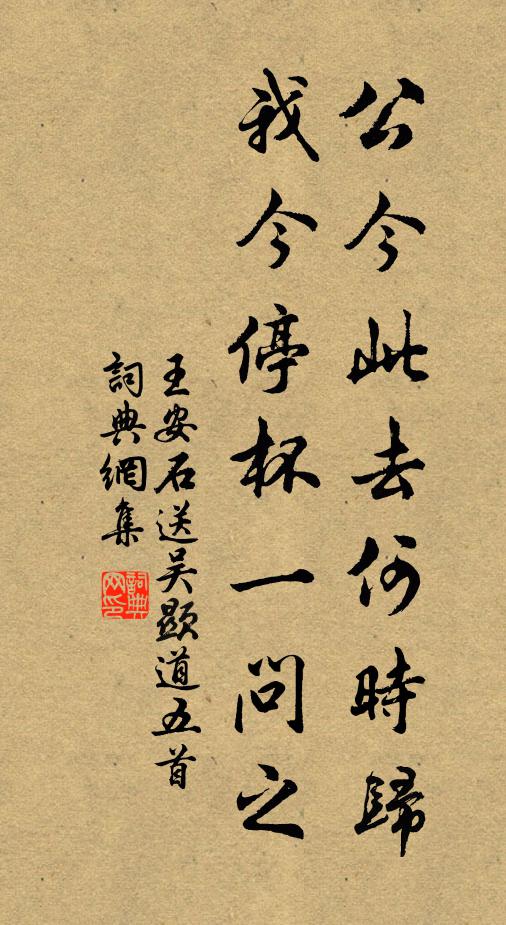 公今此去何時歸
我今停杯一問之
王安石送吴顯道五首
詞典網集
詞典网印